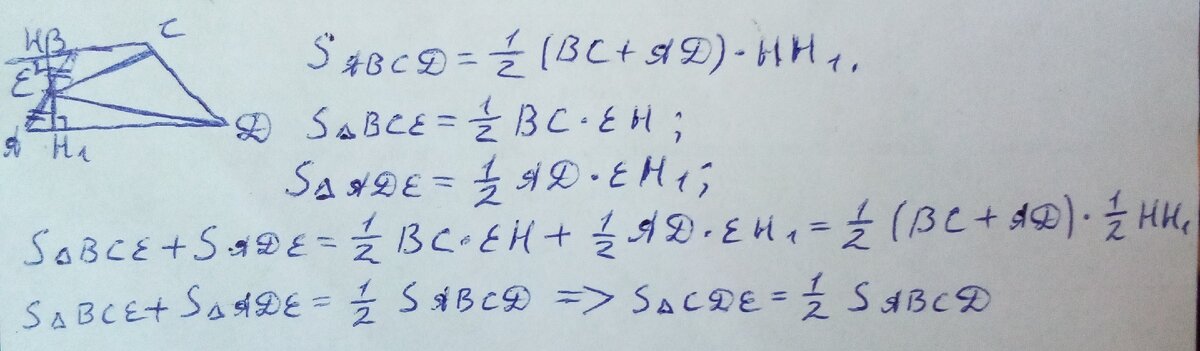 H B C
E
A H₁ D
S ABCD = 1/2 (BC + AD) · HH₁.
S△BCE = 1/2 BC · EH ;
S△ADE = 1/2 AD · EH₁ ;
S△BCE + S ADE = 1/2 BC · EH + 1/2 AD · EH₁ = 1/2 (BC + AD) · 1/2 HH₁
S△BCE + S△ADE = 1/2 S ABCD => S△CDE = 1/2 S ABCD